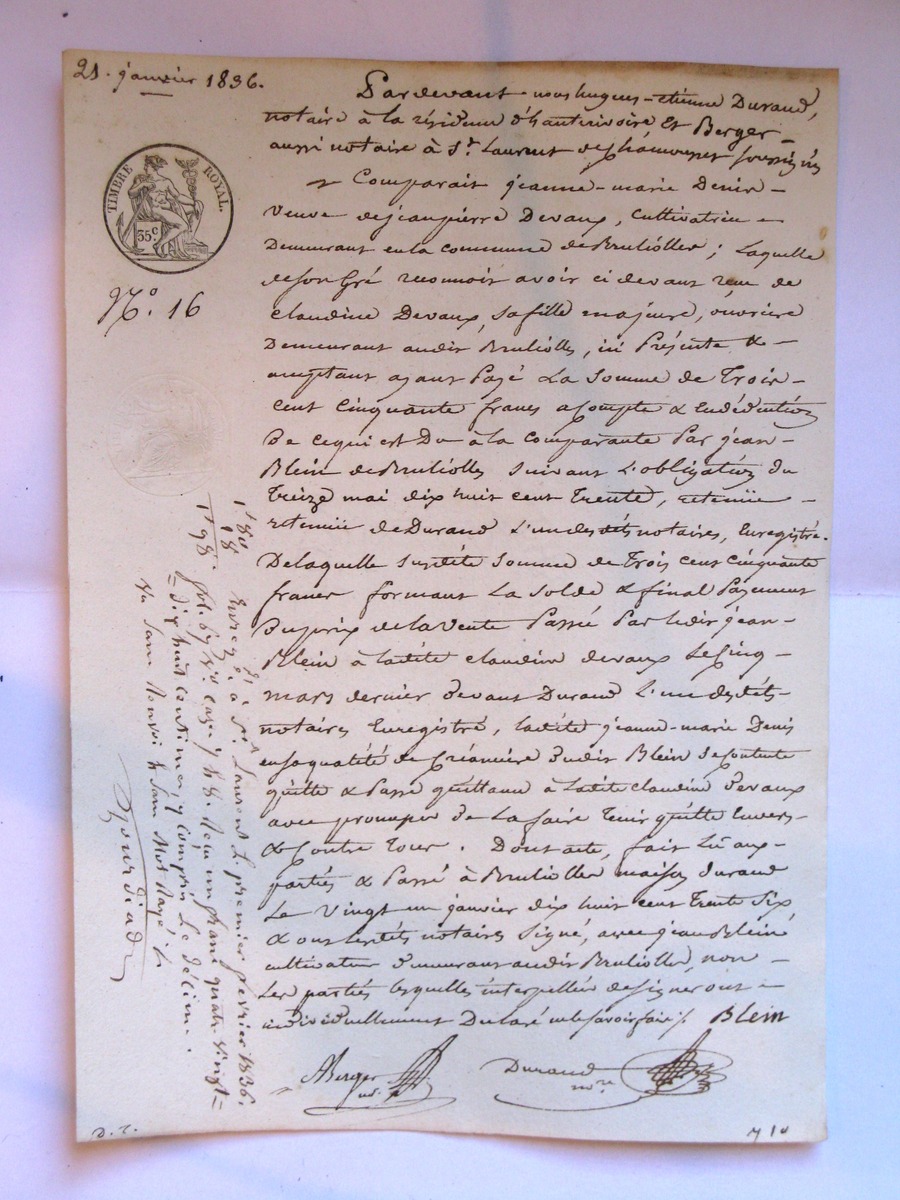 21. janvier 1836.
Pardevant nous hugues-etienne Durand,
notaire à la résidence d'hauterivoire Et Berger
aussi notaire à St. Laurent de Chamousset soussignés
Comparait jeanne-marie Denis
veuve de jeanpierre Devaux, cultivatrice
Demeurant en la commune de Bruliolles; Laquelle
de son Gré reconnoit avoir ci devant reçu de
Claudine Devaux, sa fille majeure, ouvrière
Demeurant audit Bruliolles, ici Présente &
acceptant ayant Payé La Somme de Trois
cent cinquante francs acompte & En déduction
De ce qui est Du à la comparante Par jean
Blein de Bruliolles Suivant L'obligation du
Treize mai dix huit cent Trente, retenue
retenue de Durand L'un desdits notaires, Enregistré.
De laquelle susdite Somme de Trois cent cinquante
francs formant La Solde & final Payement
Du prix de la vente Passée Par ledit jean
Blein à ladite claudine devaux Le cinq
mars dernier devant Durand L'un desdits
notaires Enregistré, ladite jeanne-marie Denis
en sa qualité de créancière dudit Blein se contente
quitte & Passe quittance à ladite claudine devaux
avec promesse de La faire Tenir quitte Envers
& Contre Tous. Dont acte, fait Lu aux
parties & Passé à Bruliolles maison durand
Le vingt un janvier dix huit cent Trente Six
& ont lesdits notaires Signé, avec jean Blein
cultivateur demeurant audit Bruliolles, non
Les parties lesquelles interpellées de signer ont
individuellement Déclaré ne le savoir faire ./. Blein
ABerger
Durand
nre
TIMBRE ROYAL.
35c
No. 16
1f 80
18
1f 98.
Enregé. à St. Laurent le premier février 1836.
fol. 67 vo. case 7 & 8. Reçu un franc quatre vingt
dix huit centimes y compris Le décime.
sans Renvoi & sans Mot Rayé
D. r.
710